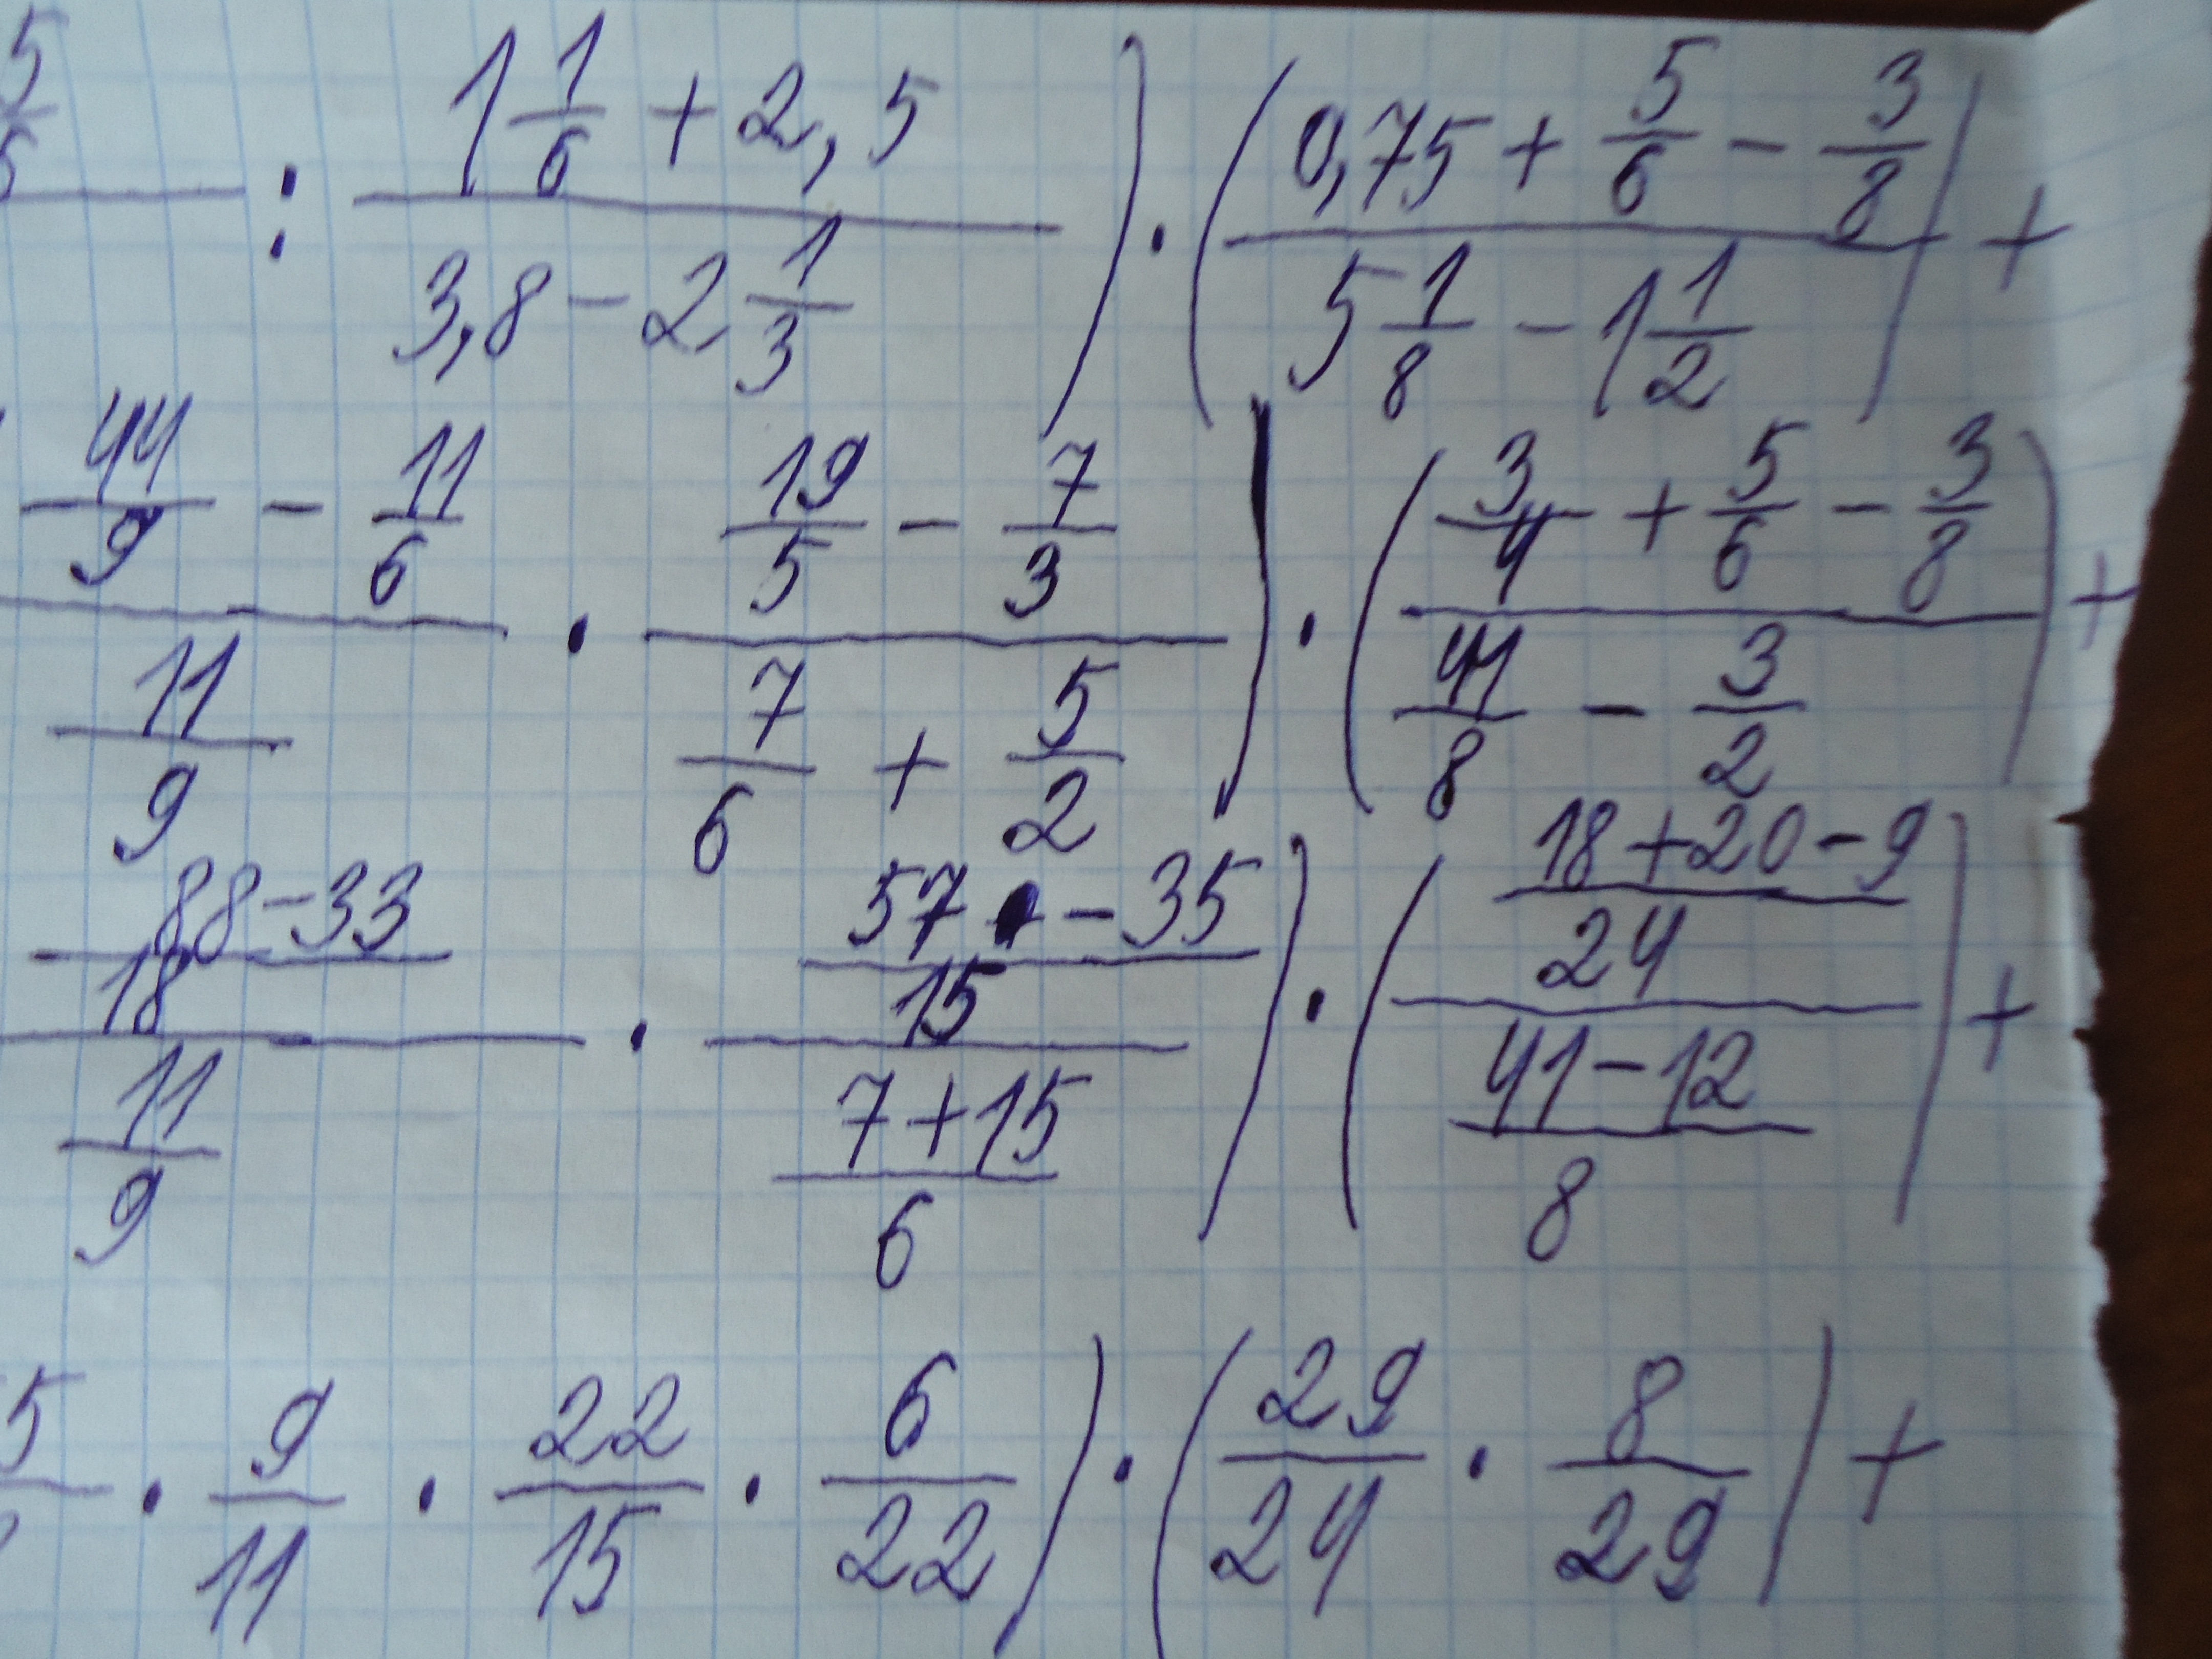 5/6 : (1 1/6 + 2,5)/(3,8 - 2 1/3)) · ((0,75 + 5/6 - 3/8)/(5 1/8 - 1 1/2)) +
(44/9 - 11/6)/(11/9) · (19/5 - 7/3)/(7/6 + 5/2)) · ((3/4 + 5/6 - 3/8)/(41/8 - 3/2)) +
((88-33)/18)/(11/9) · ((57 - 35)/15)/((7+15)/6)) · (((18+20-9)/24)/((41-12)/8)) +
5 · 9/11 · 22/15 · 6/22) · (29/24 · 8/29) +